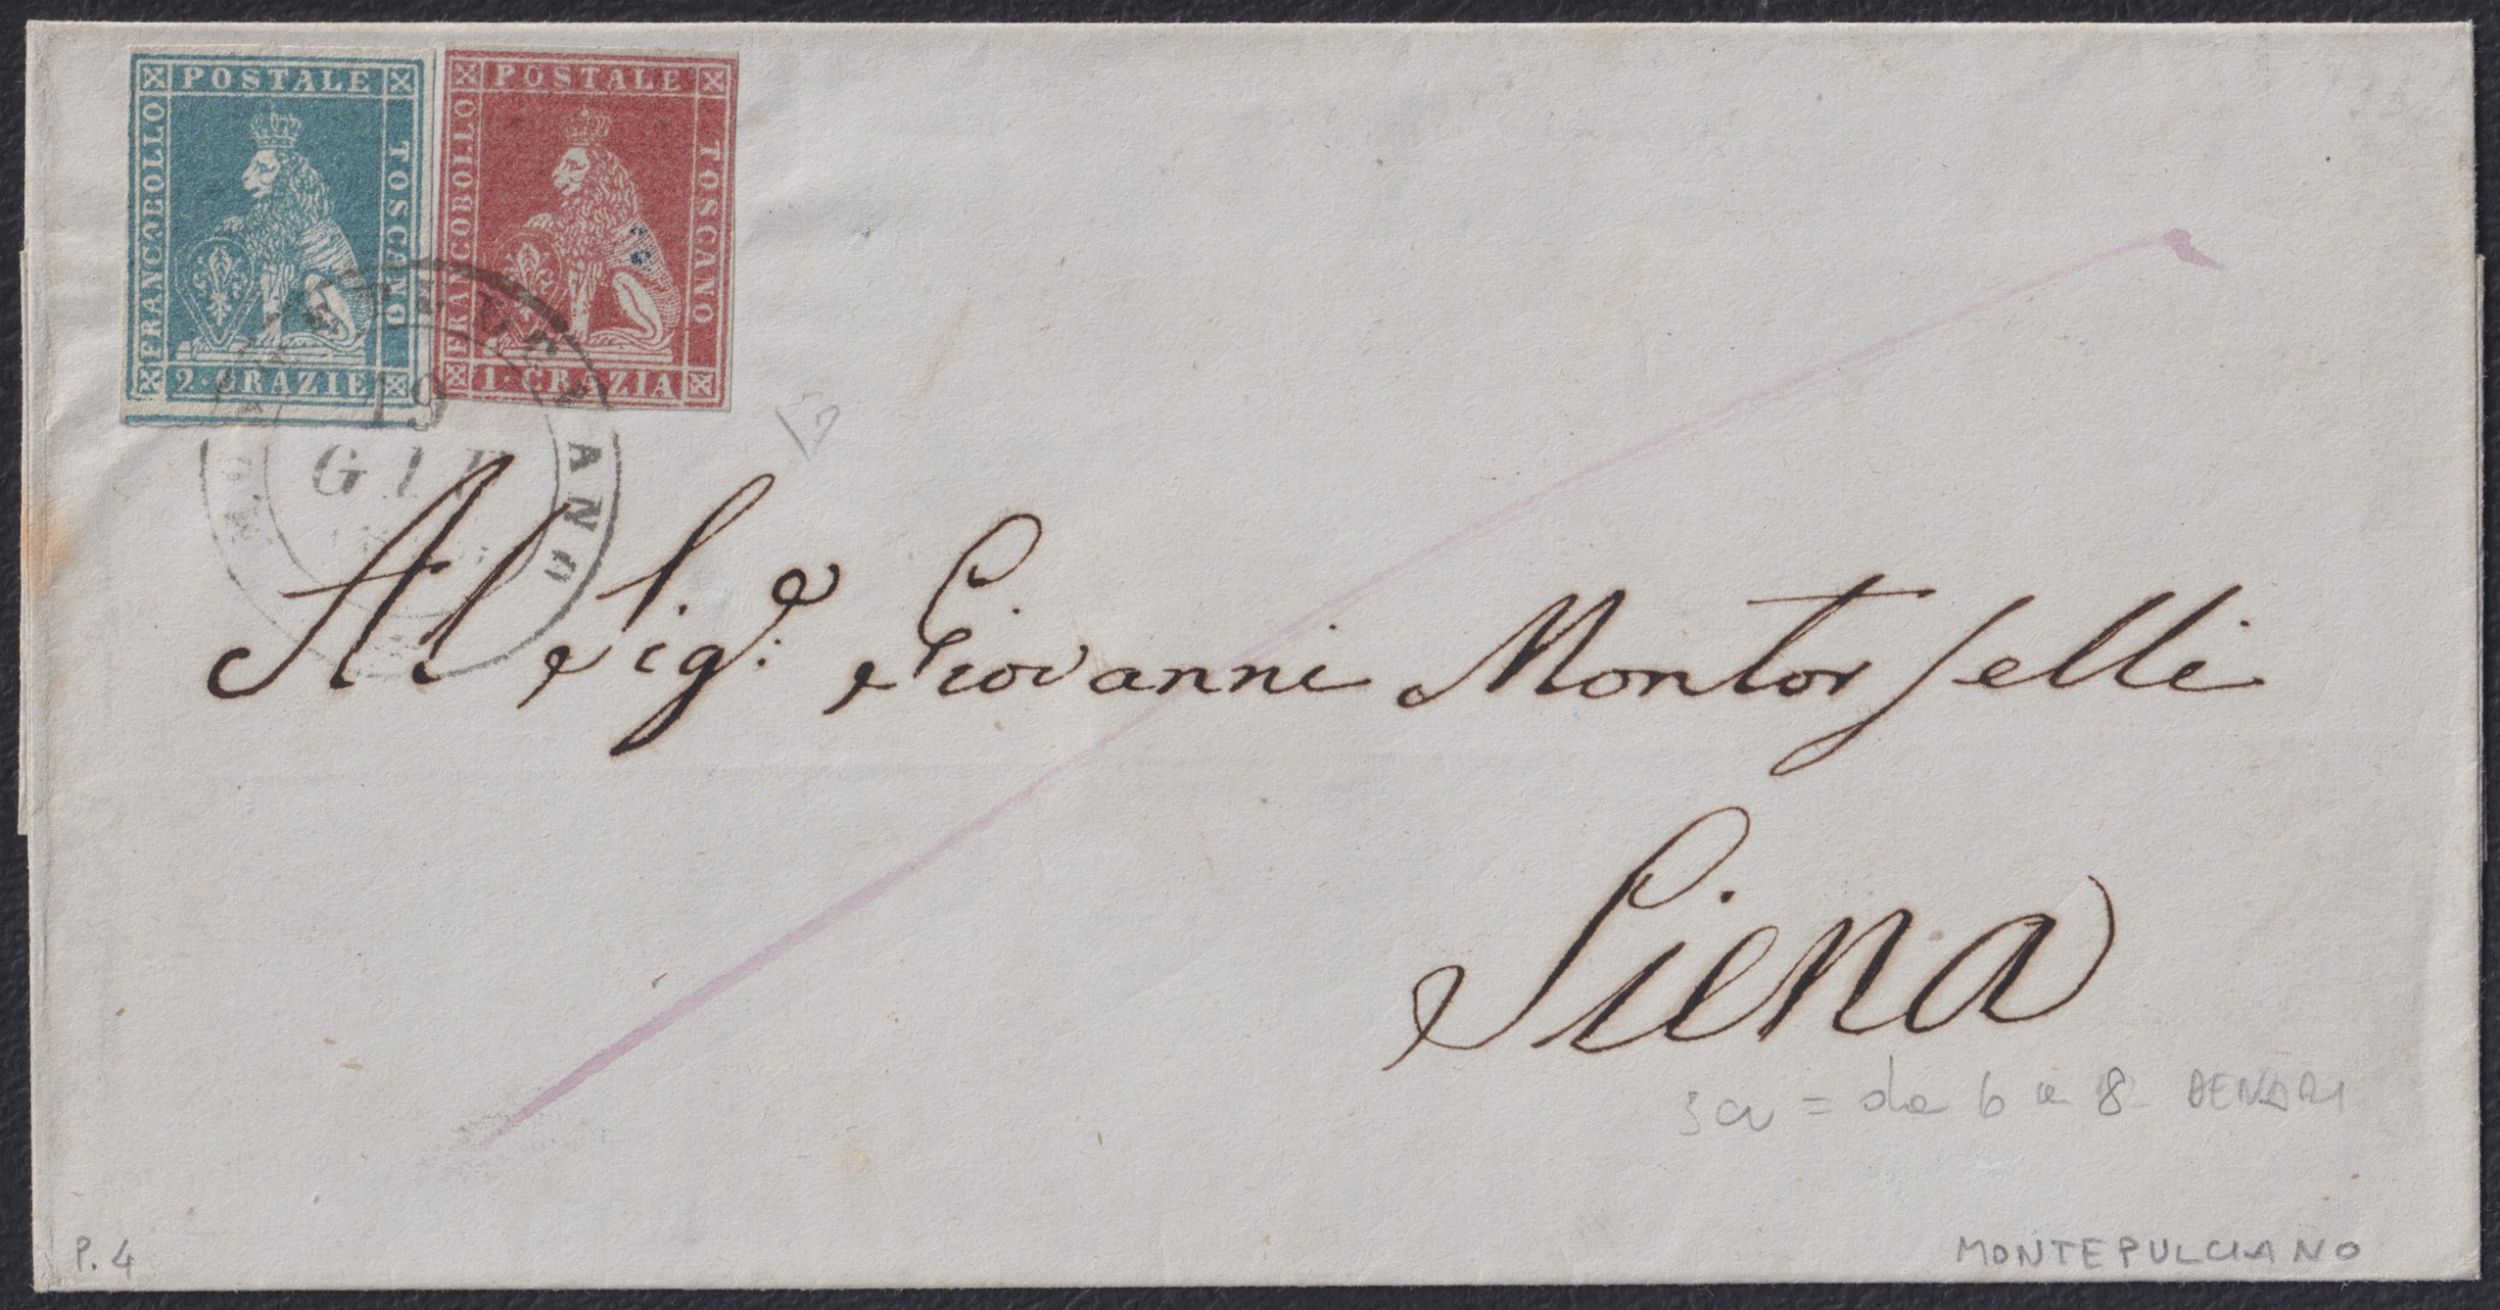 POSTALE
FRANCOBOLLO
TOSCANO
2·CRAZIE
POSTALE
FRANCOBOLLO
TOSCANO
1·CRAZIA
MONTEPULCIANO
19
Al Sig.e Giovanni Montorselli
Siena
3 cr = da 6 a 8 DENARI
P. 4
MONTEPULCIANO